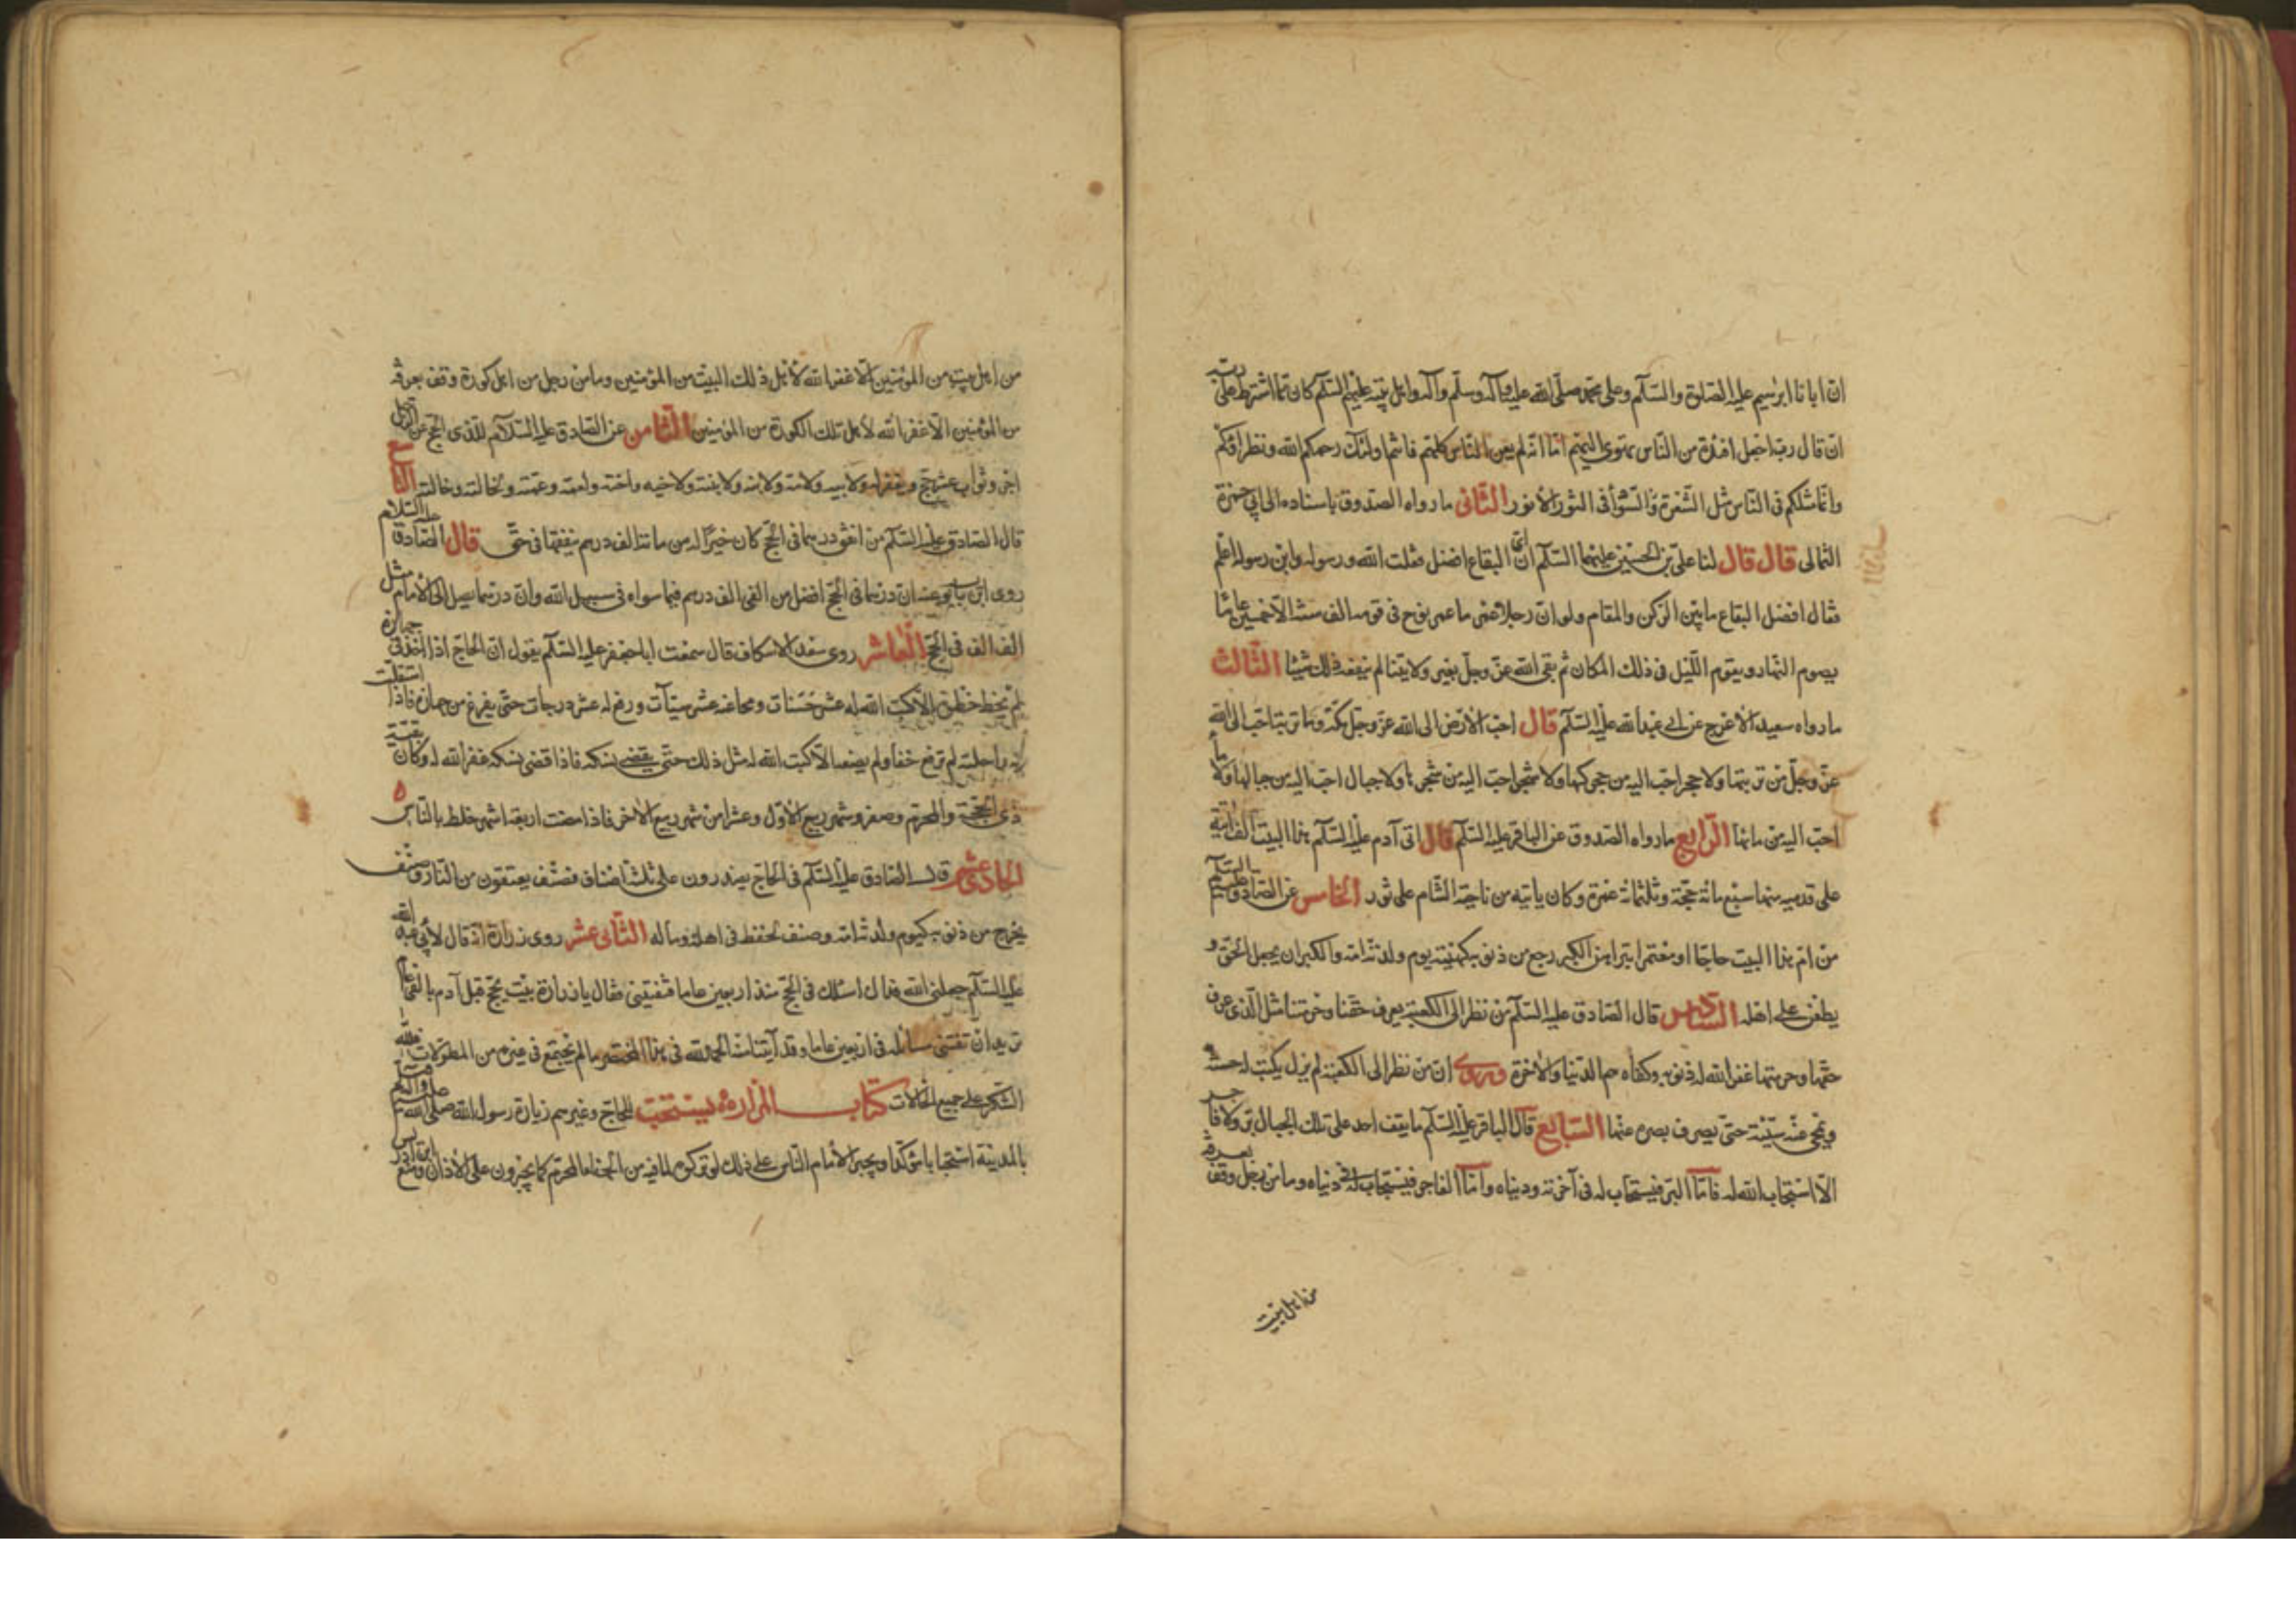 ان ابانا ابرهيم عليه الصلوة والسلام وعلى محمد صلى الله عليه وآله وسلم وآله واهل بيته عليهم السلام كان مما اشترط على ربه
ان قال رب اجعل افئدة من الناس تهوى اليهم اما انه لم يعن الناس كلهم فانتم اولئك رحمكم الله ونظراؤكم
وانما مثلكم فى الناس مثل الشعرة السوداء فى الثور الانور الثانى ما رواه الصدوق باسناده الى ابى حمزة
الثمالى قال قال لنا على بن الحسين عليهما السلام اى البقاع افضل فقلت الله ورسوله وابن رسوله اعلم
فقال افضل البقاع ما بين الركن والمقام ولو ان رجلا عمر ما عمر نوح فى قومه الف سنة الا خمسين عاما
يصوم النهار ويقوم الليل فى ذلك المكان ثم لقى الله عز وجل بغير ولايتنا لم ينفعه ذلك شيئا الثالث
ما رواه سعيد الاعرج عن ابى عبد الله عليه السلام قال احب الارض الى الله عز وجل مكة وما تربة احب الى الله
عز وجل من تربتها ولا حجر احب اليه من حجرها ولا شجر احب اليه من شجرها ولا جبال احب اليه من جبالها ولا ماء
احب اليه من مائها الرابع ما رواه الصدوق عن الباقر عليه السلام قال اتى آدم عليه السلام هذا البيت الف اتية
على قدميه منها سبع مائة حجة وثلثمائة عمرة وكان ياتيه من ناحية الشام على ثور الخامس عن الصادق عليه السلام
من ام هذا البيت حاجا او معتمرا مبرأ من الكبر رجع من ذنوبه كهيئة يوم ولدته امه والكبر ان يجهل الحق و
يطعن على اهله السادس قال الصادق عليه السلام من نظر الى الكعبة بعرف حقنا وحرمتنا مثل الذى عرف
حقها وحرمتها غفر الله له ذنوبه وكفاه هم الدنيا والاخرة وروى ان من نظر الى الكعبة لم يزل يكتب له حسنة
ويمحى عنه سيئة حتى يصرف بصره عنها السابع قال الباقر عليه السلام ما يقف احد على تلك الجبال بر ولا فاجر
الا استجاب الله له فاما البر فيستجاب له فى آخرته ودنياه واما الفاجر فيستجاب له فى دنياه وما من رجل وقف بعرفة
من اهل بيت
من اهل بيت من المؤمنين الا غفر الله لاهل ذلك البيت من المؤمنين وما من رجل من اهل كورة وقف بعرفة
من المؤمنين الا غفر الله لاهل تلك الكورة من المؤمنين الثامن عن الصادق عليه السلام للذى الحج عن الرجل
اجر وثواب عشر حج وغفر له ولابيه ولامه ولابنه ولابنته ولاخيه واخته ولعمه وعمته ولخاله وخالته التاسع
قال الصادق عليه السلام من انفق درهما فى الحج كان خيرا له من مائة الف درهم ينفقها فى حق قال الصادق عليه السلام
روى ابن بابويه عنه ان درهما فى الحج افضل من الفى الف درهم فيما سواه فى سبيل الله وان درهما يصل الى الامام مثل
الف الف فى الحج العاشر روى سعد الاسكاف قال سمعت ابا جعفر عليه السلام يقول ان الحاج اذا اخذ فى جهازه
لم يخط خطوة الا كتب الله له عشر حسنات ومحا عنه عشر سيئات ورفع له عشر درجات حتى يفرغ من جهازه فاذا استقلت
به راحلته لم ترفع خفا ولم يضعه الا كتب الله له مثل ذلك حتى يقضى نسكه فاذا قضى نسكه غفر الله له وكان بقية
ذى الحجة والمحرم وصفر وشهر ربيع الاول وعشرا من شهر ربيع الاخر فاذا مضت اربعة اشهر خلط بالناس
الحادى عشر قال الصادق عليه السلام فى الحاج يصدرون على ثلثة اصناف فصنف يعتقون من النار وصنف
يخرج من ذنوبه كيوم ولدته امه وصنف يحفظ فى اهله وماله الثانى عشر روى زرارة انه قال لابى عبد الله
عليه السلام جعلنى الله فداك اسئلك فى الحج منذ اربعين عاما فتفتينى فقال يا زرارة بيت يحج قبل آدم بالفى عام
تريد ان تفنى مسائله فى اربعين عاما وقد آتينا الحمد لله فى هذا المختصر ما لم يجتمع فى غيره من المطولات فلله
الشكر على جميع الحالات كتاب المزار يستحب للحاج وغيرهم زيارة رسول الله صلى الله عليه وآله
بالمدينة استحبابا مؤكدا ويجبر الامام الناس على ذلك لو تركوه لما فيه من الجفاء المحرم كما يجبرون على الاذان ومنع ابن ادريس